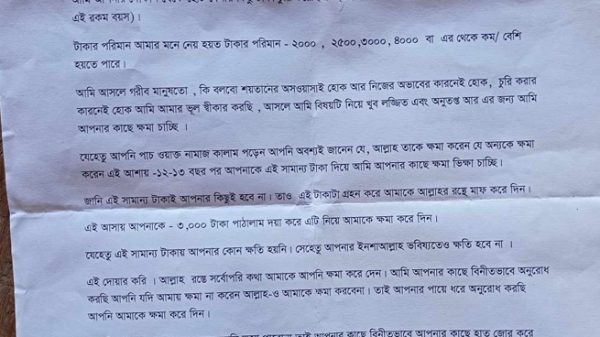 এই রকম বয়স)।
টাকার পরিমান আমার মনে নেয় হয়ত টাকার পরিমান - ২০০০ , ২৫০০,৩০০০, ৪০০০ বা এর থেকে কম/ বেশি
হয়তে পারে।
আমি আসলে গরীব মানুষতো , কি বলবো শয়তানের অসওয়াসাই হোক আর নিজের অভাবের কারনেই হোক, চুরি করার
কারনেই হোক আমি আমার ভুল স্বীকার করছি , আসলে আমি বিষয়টি নিয়ে খুব লজ্জিত এবং অনুতপ্ত আর এর জন্য আমি
আপনার কাছে ক্ষমা চাচ্ছি ।
যেহেতু আপনি পাচ ওয়াক্ত নামাজ কালাম পড়েন আপনি অবশ্যই জানেন যে, আল্লাহ তাকে ক্ষমা করেন যে অন্যকে ক্ষমা
করেন এই আশায় -১২-১৩ বছর পর আপনাকে এই সামান্য টাকা দিয়ে আমি আপনার কাছে ক্ষমা ভিক্ষা চাচ্ছি।
জানি এই সামান্য টাকাই আপনার কিছুই হবে না। তাও এই টাকাটা গ্রহন করে আমাকে আল্লাহর রস্তে মাফ করে দিন।
এই আসায় আপনাকে - ৩,০০০ টাকা পাঠালাম দয়া করে এটি নিয়ে আমাকে ক্ষমা করে দিন।
যেহেতু এই সামান্য টাকায় আপনার কোন ক্ষতি হয়নি। সেহেতু আপনার ইনশাআল্লাহ ভবিষ্যতেও ক্ষতি হবে না ।
এই দোয়ার করি । আল্লাহ রস্তে সর্বোপরি কথা আমাকে আপনি ক্ষমা করে দেন। আমি আপনার কাছে বিনীতভাবে অনুরোধ
করছি আপনি যদি আমায় ক্ষমা না করেন আল্লাহ-ও আমাকে ক্ষমা করবেনা। তাই আপনার পায়ে ধরে অনুরোধ করছি
আপনি আমাকে ক্ষমা করে দিন।
তাই আপনার কাছে বিনীতভাবে আপনার কাছে হাত জোর করে